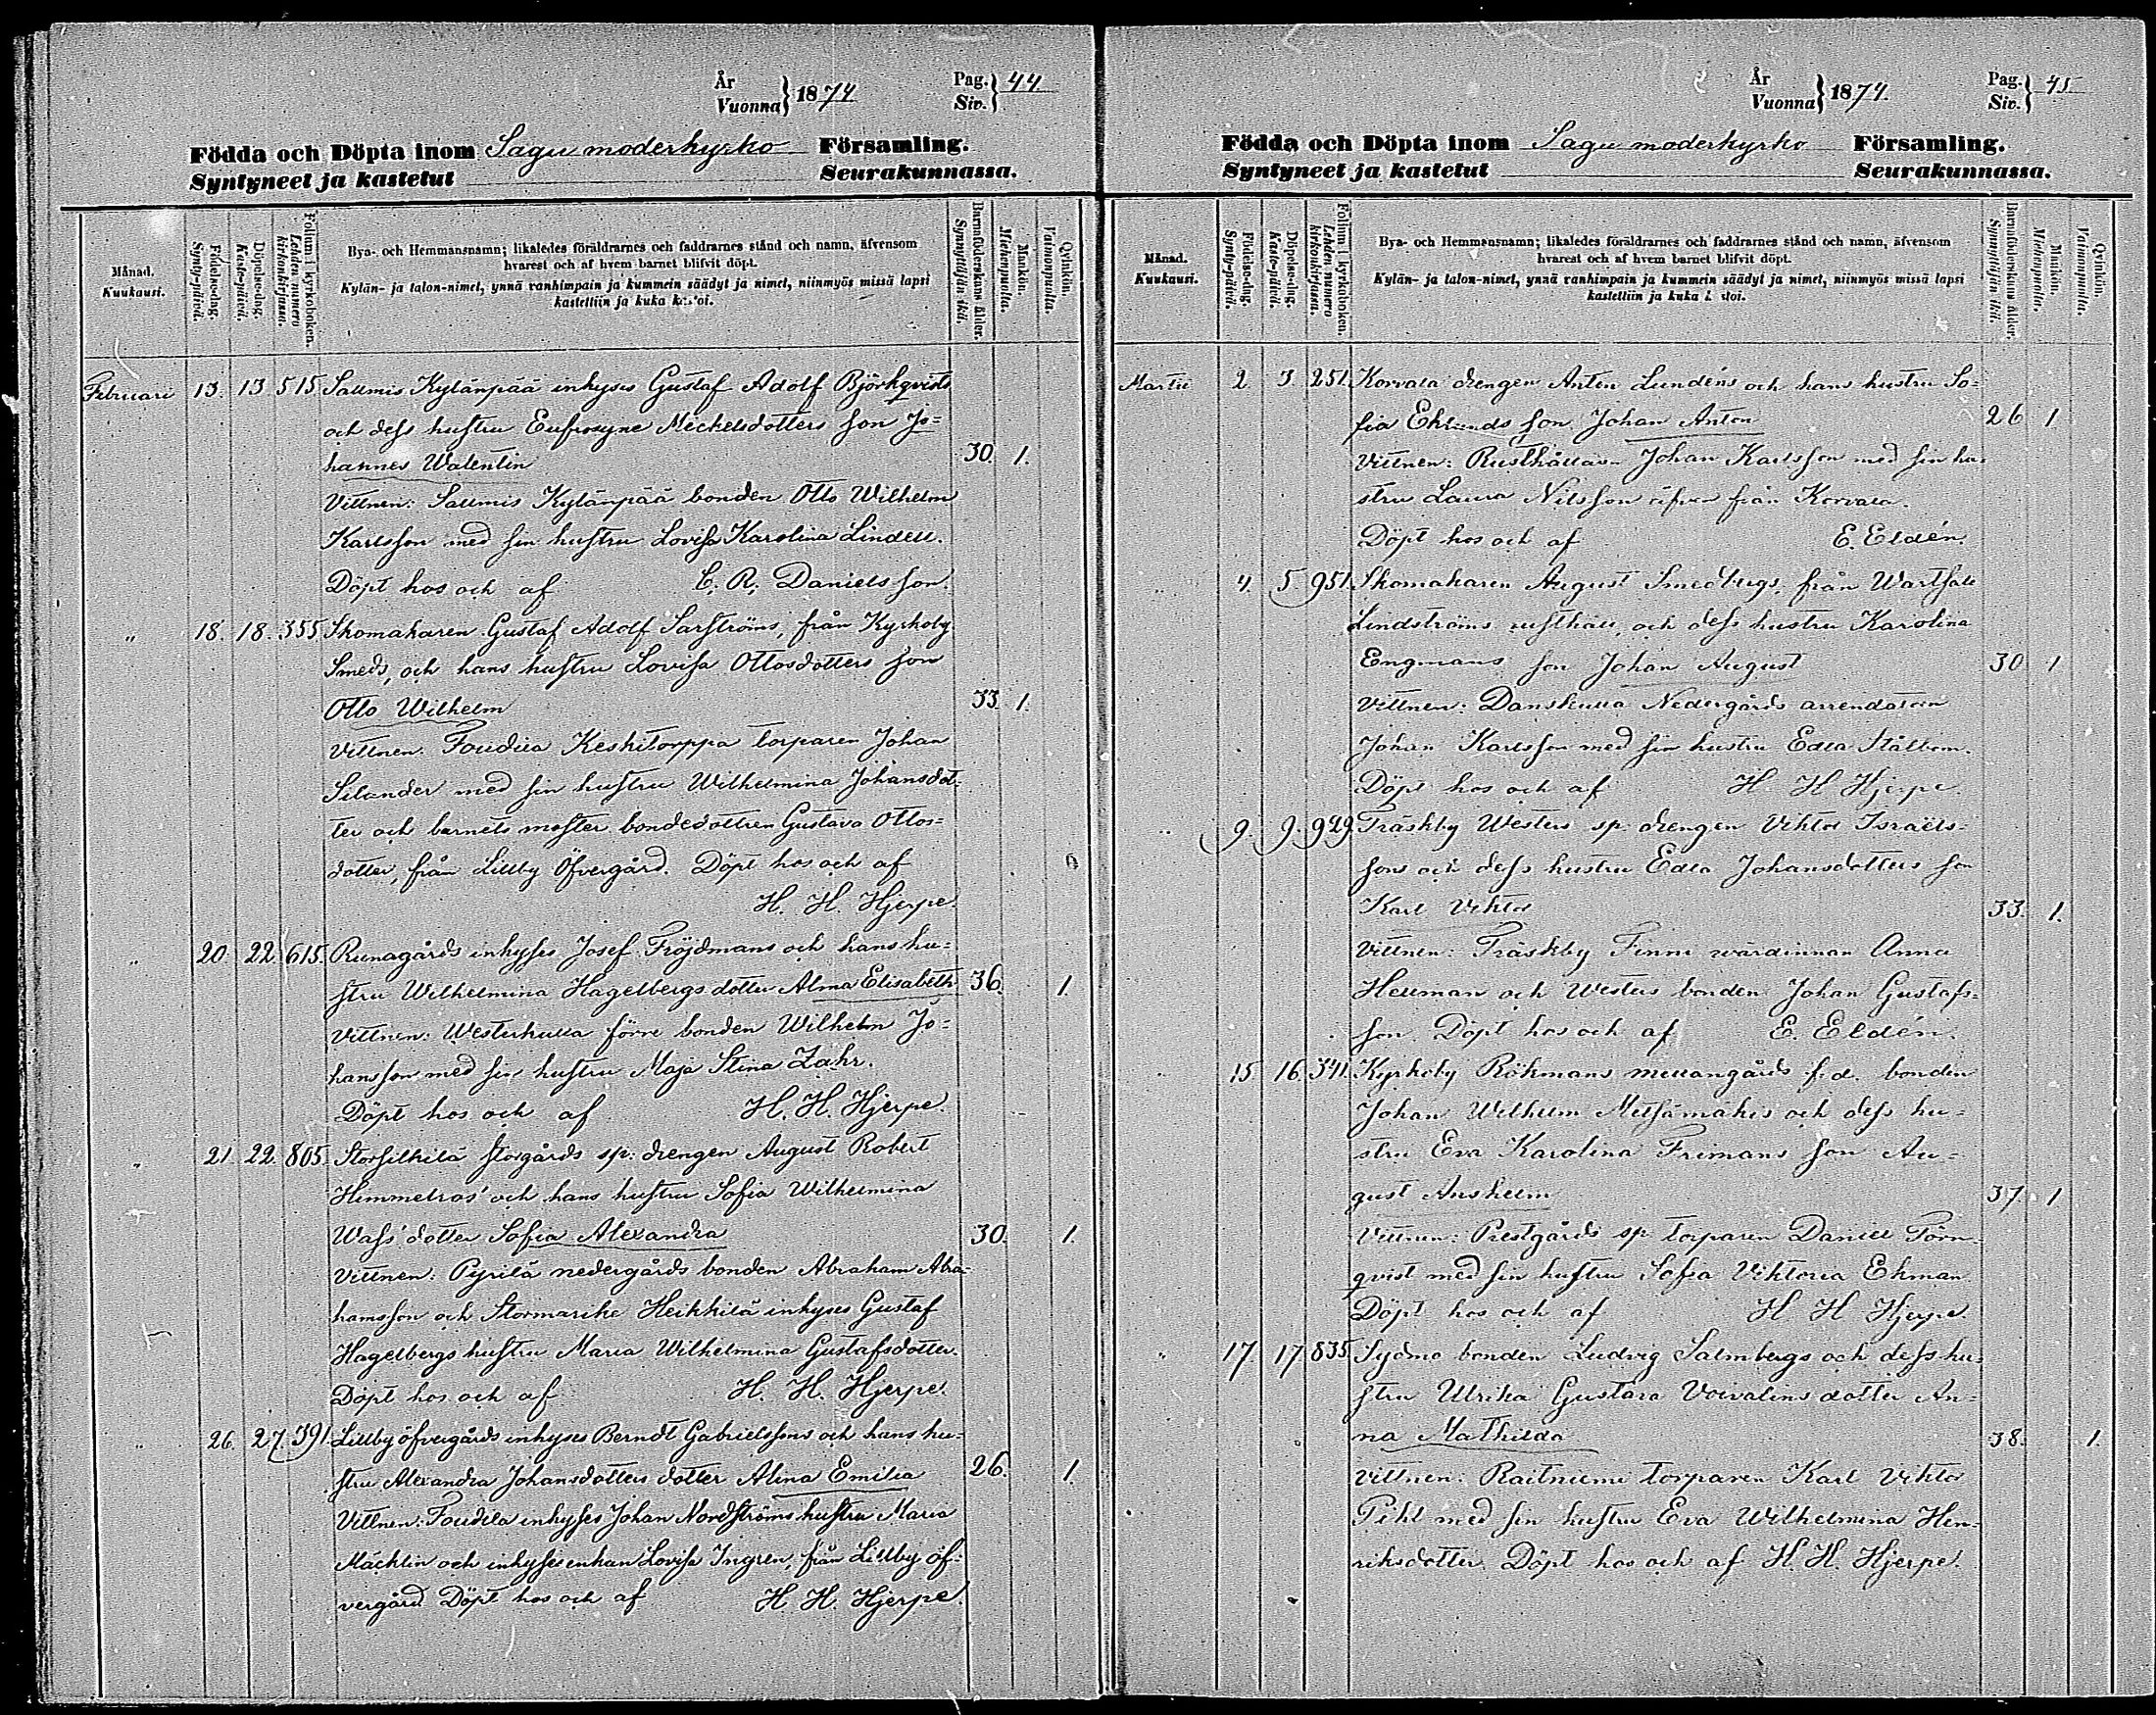 År
Vuonna } 1874
Pag.
Siv. } 44.
Födda och Döpta inom Sagu moderkyrko Församling.
Syntyneet ja kastetut Seurakunnassa.
Månad.
Kuukausi.
Födelse-dag.
Synty-päivä.
Döpelse-dag.
Kaste-päivä.
Folium i kyrkoboken.
Lehden numero kirkonkirjassa.
Bya- och Hemmansnamn; likaledes föräldrarnes och faddrarnes stånd och namn, äfvensom
hvarest och af hvem barnet blifvit döpt.
Kylän- ja talon-nimet, ynnä vanhimpain ja kummein säädyt ja nimet, niinmyös missä lapsi
kastettiin ja kuka kastoi.
Barnaföderskans ålder.
Synnyttäjän ikä.
Mankön.
Miehenpuolia.
Qvinkön.
Vaimonpuolia.
Februari 13. 13. 515 Salmis Kylänpää inhyses Gustaf Adolf Björkqvists
och dess hustru Eufrosyne Mickelsdotters son Jo=
hannes Walentin 30. 1.
Vittnen: Salmis Kylänpää bonden Otto Wilhelm
Karlsson med sin hustru Lovisa Karolina Lindell.
Döpt hos och af C. R. Danielsson.
" 18. 18. 355 Skomakaren Gustaf Adolf Sarströms, från Kyrkoby
Smeds, och hans hustru Lovisa Ottosdotters son
Otto Wilhelm 33. 1.
Vittnen: Foudila Keskitorppa torparen Johan
Silander med sin hustru Wilhelmina Johansdot=
ter och barnets moster bondedottren Gustava Ottos=
dotter, från Lillby Öfvergård. Döpt hos och af
H. H. Hjerpe.
" 20. 22. 615. Runagårds inhyses Josef Fröjdmans och hans hu=
stru Wilhelmina Hagelbergs dotter Alma Elisabeth 36. 1.
Vittnen: Westerkulla förre bonden Wilhelm Jo=
hansson med sin hustru Maja Stina Zahr.
Döpt hos och af H. H. Hjerpe.
" 21. 22. 805. Storsilkilä storgårds sp: drengen August Robert
Himmelros' och hans hustru Sofia Wilhelmina
Wass' dotter Sofia Alexandra 30. 1.
Vittnen: Pyrilä nedergårds bonden Abraham Abra=
hamsson och Stormarike Heikkilä inhyses Gustaf
Hagelbergs hustru Maria Wilhelmina Gustafsdotter.
Döpt hos och af H. H. Hjerpe.
" 26. 27. 391. Lillby öfvergårds inhyses Berndt Gabrielssons och hans hu=
stru Alexandra Johansdotters dotter Alina Emilia 26. 1.
Vittnen: Foudila inhyses Johan Nordströms hustru Maria
Mäcklin och inhysesenkan Lovisa Ingren, från Lillby öf=
vergård. Döpt hos och af H. H. Hjerpe.
År
Vuonna } 1874.
Pag.
Siv. } 45
Födda och Döpta inom Sagu moderkyrko Församling.
Syntyneet ja kastetut Seurakunnassa.
Månad.
Kuukausi.
Födelse-dag.
Synty-päivä.
Döpelse-dag.
Kaste-päivä.
Folium i kyrkoboken.
Lehden numero kirkonkirjassa.
Bya- och Hemmansnamn; likaledes föräldrarnes och faddrarnes stånd och namn, äfvensom
hvarest och af hvem barnet blifvit döpt.
Kylän- ja talon-nimet, ynnä vanhimpain ja kummein säädyt ja nimet, niinmyös missä lapsi
kastettiin ja kuka k stoi.
Barnaföderskans ålder.
Synnyttäjän ikä.
Mankön.
Miehenpuolia.
Qvinkön.
Vaimonpuolia.
Martii 2. 3. 251. Korvala drengen Anton Lundéns och hans hustru So=
fia Eklunds son Johan Anton 26 1
Vittnen: Rusthållaren Johan Karlsson med sin hu=
stru Laura Nilsson äfven från Korvala.
Döpt hos och af E. Eldén.
" 4. 5. 951. Skomakaren August Smedbergs, från Wartsala
Lindströms rusthåll, och dess hustru Karolina
Engmans son Johan August 30 1
Vittnen: Danskulla Nedergårds arrendatorn
Johan Karlsson med sin hustru Edla Stålbom.
Döpt hos och af H. H. Hjerpe.
" 9. 9. 929. Träskby Westers sp: drengen Viktor Israëls=
sons och dess hustru Edla Johansdotters son
Karl Viktor 33. 1.
Vittnen: Träskby Finni wärdinnan Anna
Hellman och Westers bonden Johan Gustafs=
son. Döpt hos och af E. Eldén.
" 15 16. 341. Kyrkoby Rökmans mellangårds f.d. bonden
Johan Wilhelm Metsämäkis och dess hu=
stru Eva Karolina Frimans son Au=
gust Anshelm 37 1
Vittnen: Prestgårds sp: torparen Daniel Törn=
qvist med sin hustru Sofia Viktoria Ekman.
Döpt hos och af H. H. Hjerpe.
" 17. 17. 835. Sydmo bonden Ludvig Salmbergs och dess hu=
stru Ulrika Gustava Voivalins dotter An=
na Mathilda 38. 1.
Vittnen: Raitniemi torparen Karl Viktor
Pihl med sin hustru Eva Wilhelmina Hen=
riksdotter. Döpt hos och af H. H. Hjerpe.